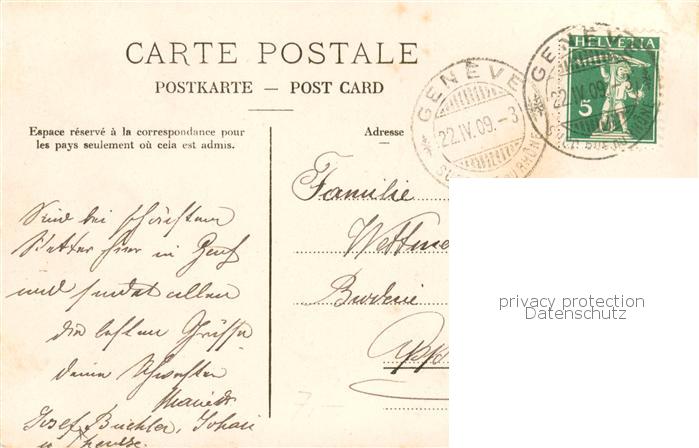 CARTE POSTALE
POSTKARTE — POST CARD
Espace réservé à la correspondance pour
les pays seulement où cela est admis.
Adresse
GENÈVE
22.IV.09.-3
GENÈVE
22.IV.09.
HELVETIA
5
Familie
Wettme
Sind bei schönstem
Wetter hier in Genf
und sendet allen
die besten Grüsse
deine Schwester
Marie
Josef Büchler, Johan
u Therese.
App
7.-
privacy protection
Datenschutz